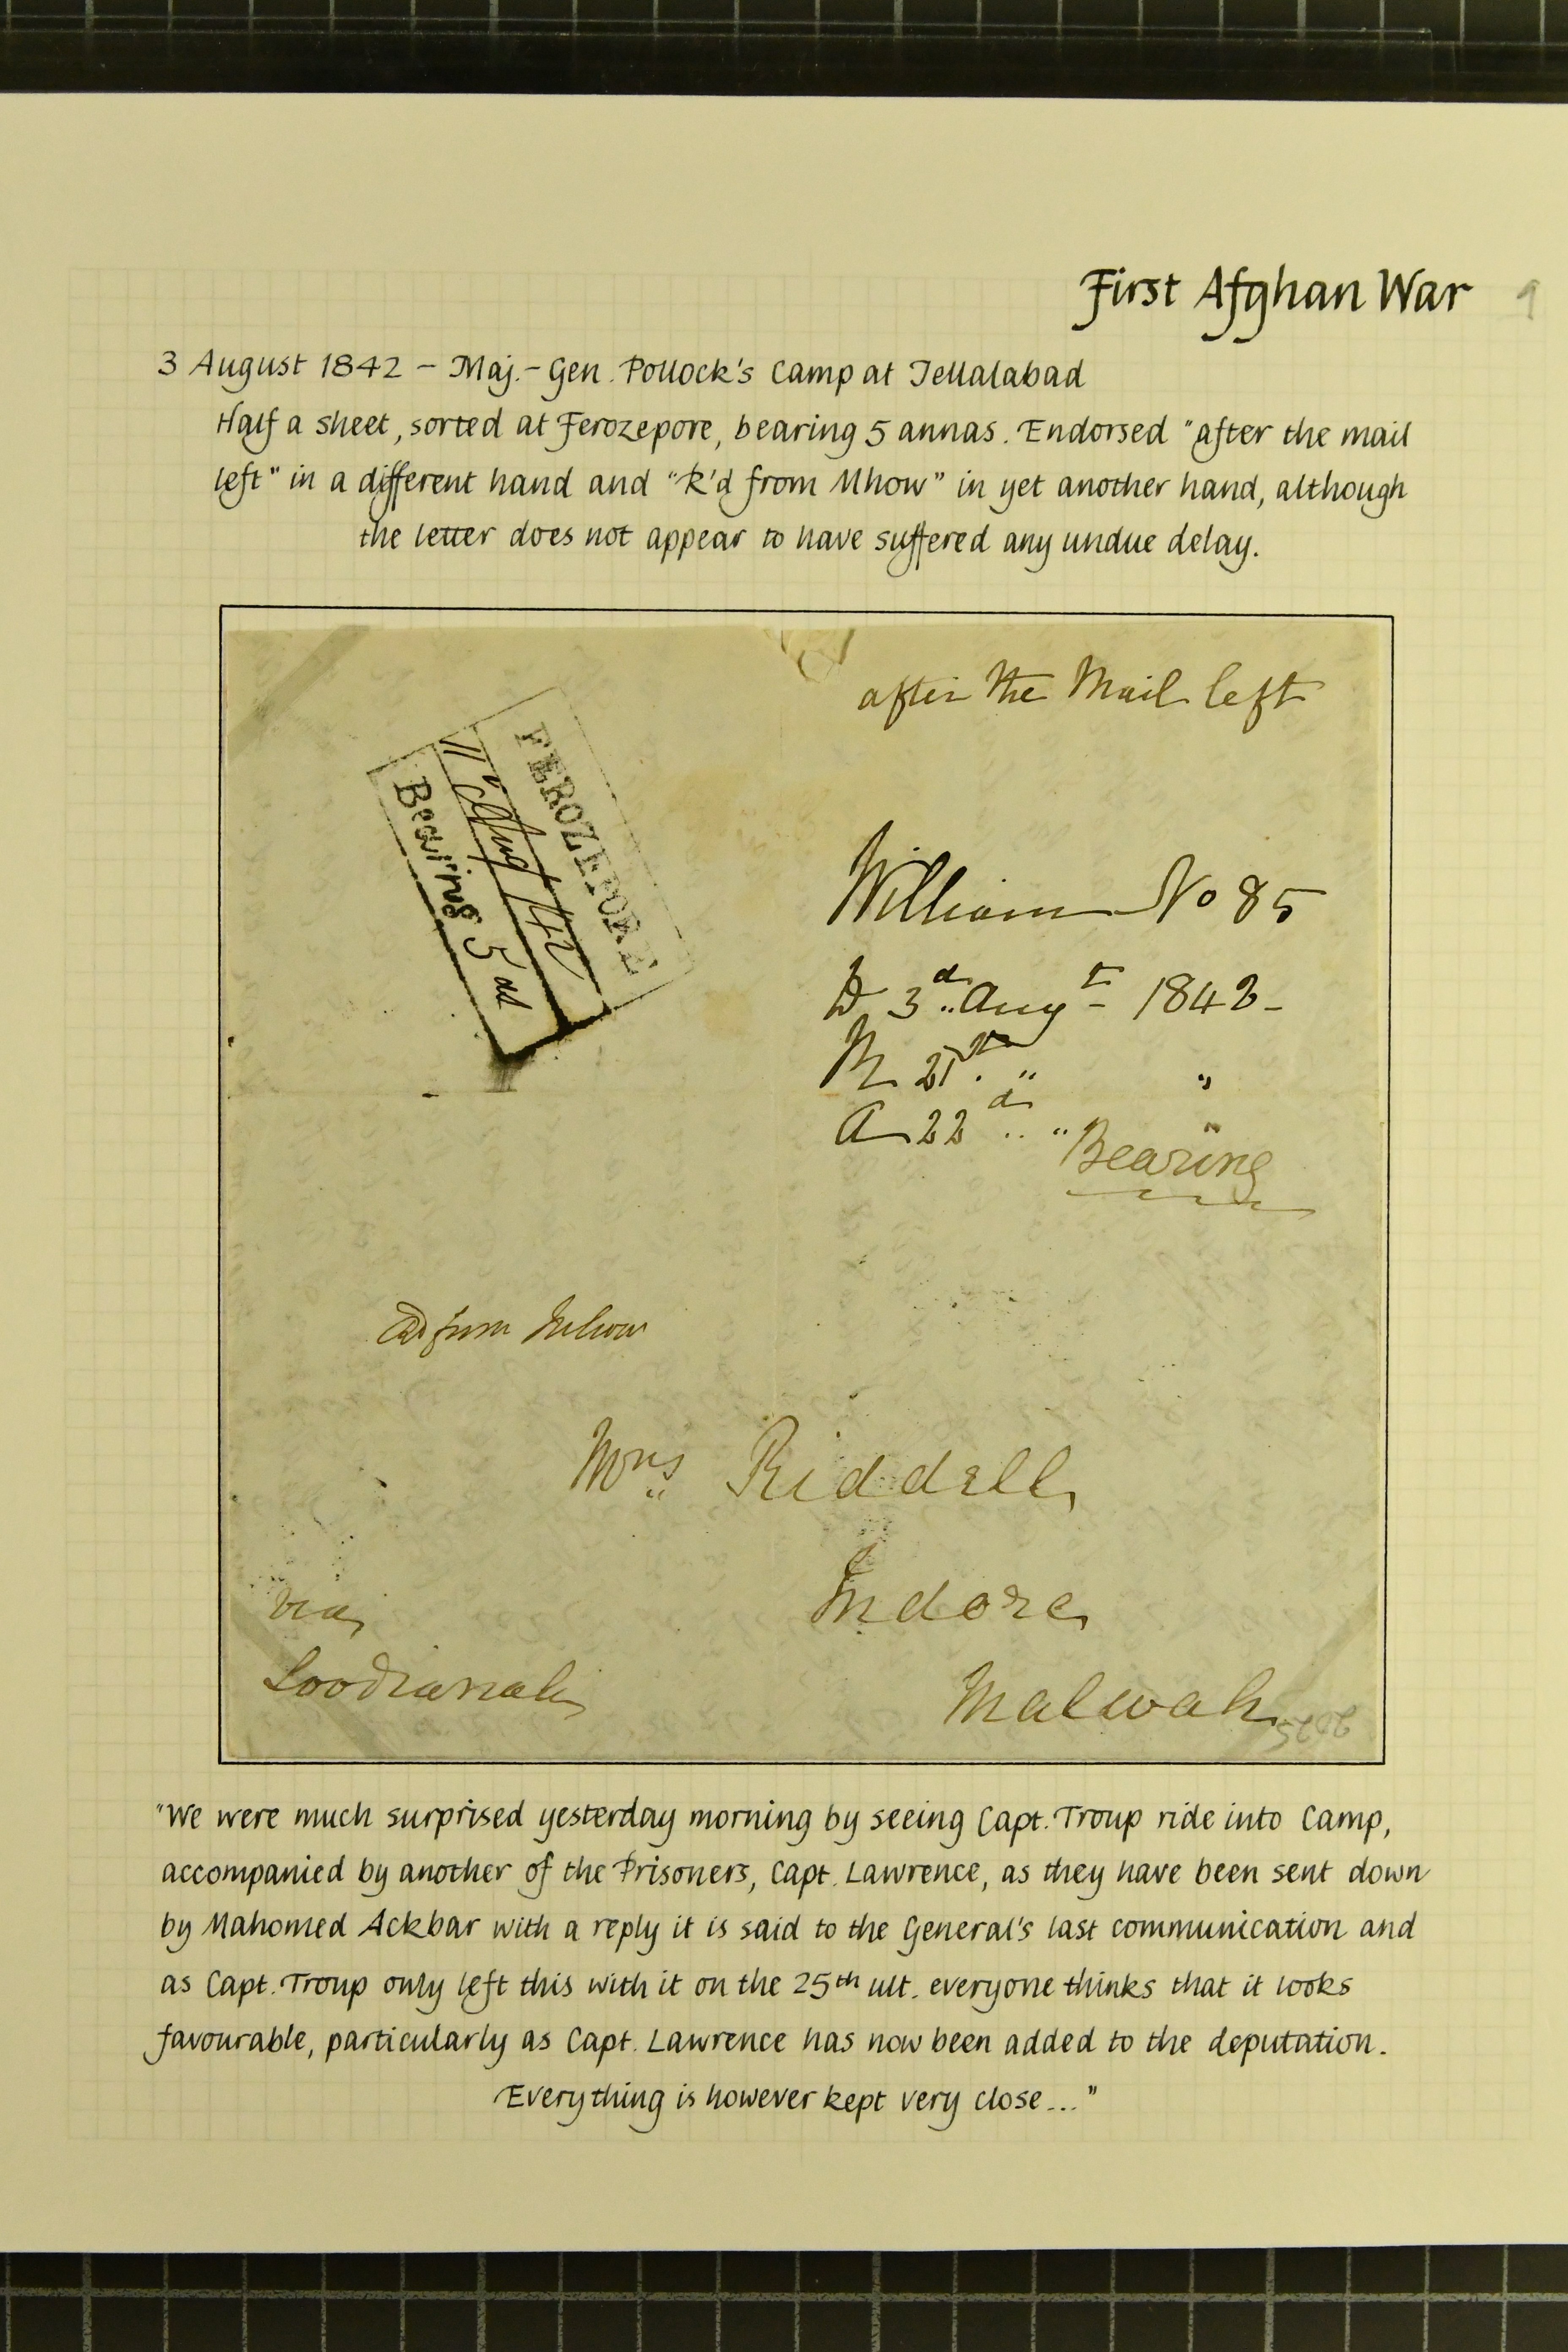 First Afghan War
3 August 1842 – Maj.-Gen. Pollock's Camp at Jellalabad
Half a sheet, sorted at Ferozepore, bearing 5 annas. Endorsed "after the mail
left" in a different hand and "R'd from Mhow" in yet another hand, although
the letter does not appear to have suffered any undue delay.
after the Mail left
FEROZEPORE
11 Aug 42
Bearing 5 as
William No 85
D 3d Augt 1842
R 21st " "
A 22d " "
Bearing
R'd from Mhow
Mrs Riddell
Indore
Malwah
via
Loodianah
"We were much surprised yesterday morning by seeing Capt. Troup ride into Camp,
accompanied by another of the Prisoners, Capt. Lawrence, as they have been sent down
by Mahomed Ackbar with a reply it is said to the General's last communication and
as Capt. Troup only left this with it on the 25th ult. everyone thinks that it looks
favourable, particularly as Capt. Lawrence has now been added to the deputation.
Everything is however kept very close..."